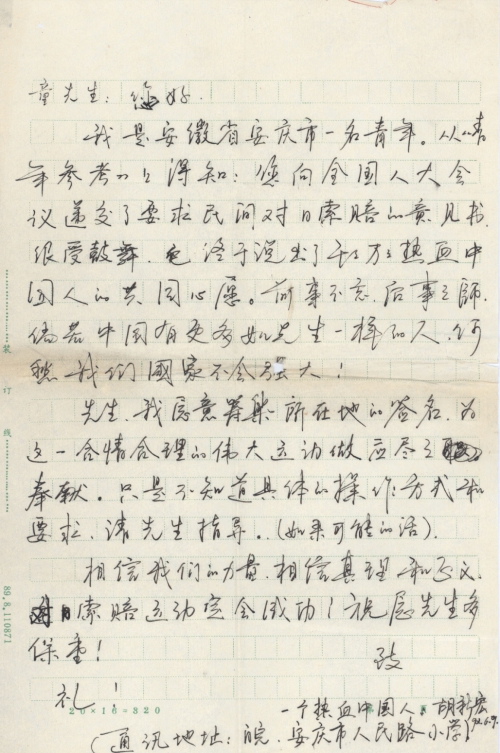 童先生：您好.
我是安徽省安庆市一名青年。从《青
年参考》上得知：您向全国人大会
议递交了要求民间对日索赔的意见书.
很受鼓舞. 也终于说出了千千万万热血中
国人的共同心愿。前事不忘，后事之师.
倘若中国有更多如先生一样的人，何
愁我们國家不会强大！
先生，我愿意筹集所在地的签名，为
这一合情合理的伟大运动做应尽之
奉献。只是不知道具体的操作方式和
要求，请先生指导..（如果可能的话）.
相信我们的力量，相信真理和正义.
对日索赔运动定会成功！祝愿先生多
保重！
致
礼！
20×16=320
一个热血中国人：胡新宏
92.6.9.
（通讯地址：皖．安庆市人民路小学）
装订线
89.8.110871